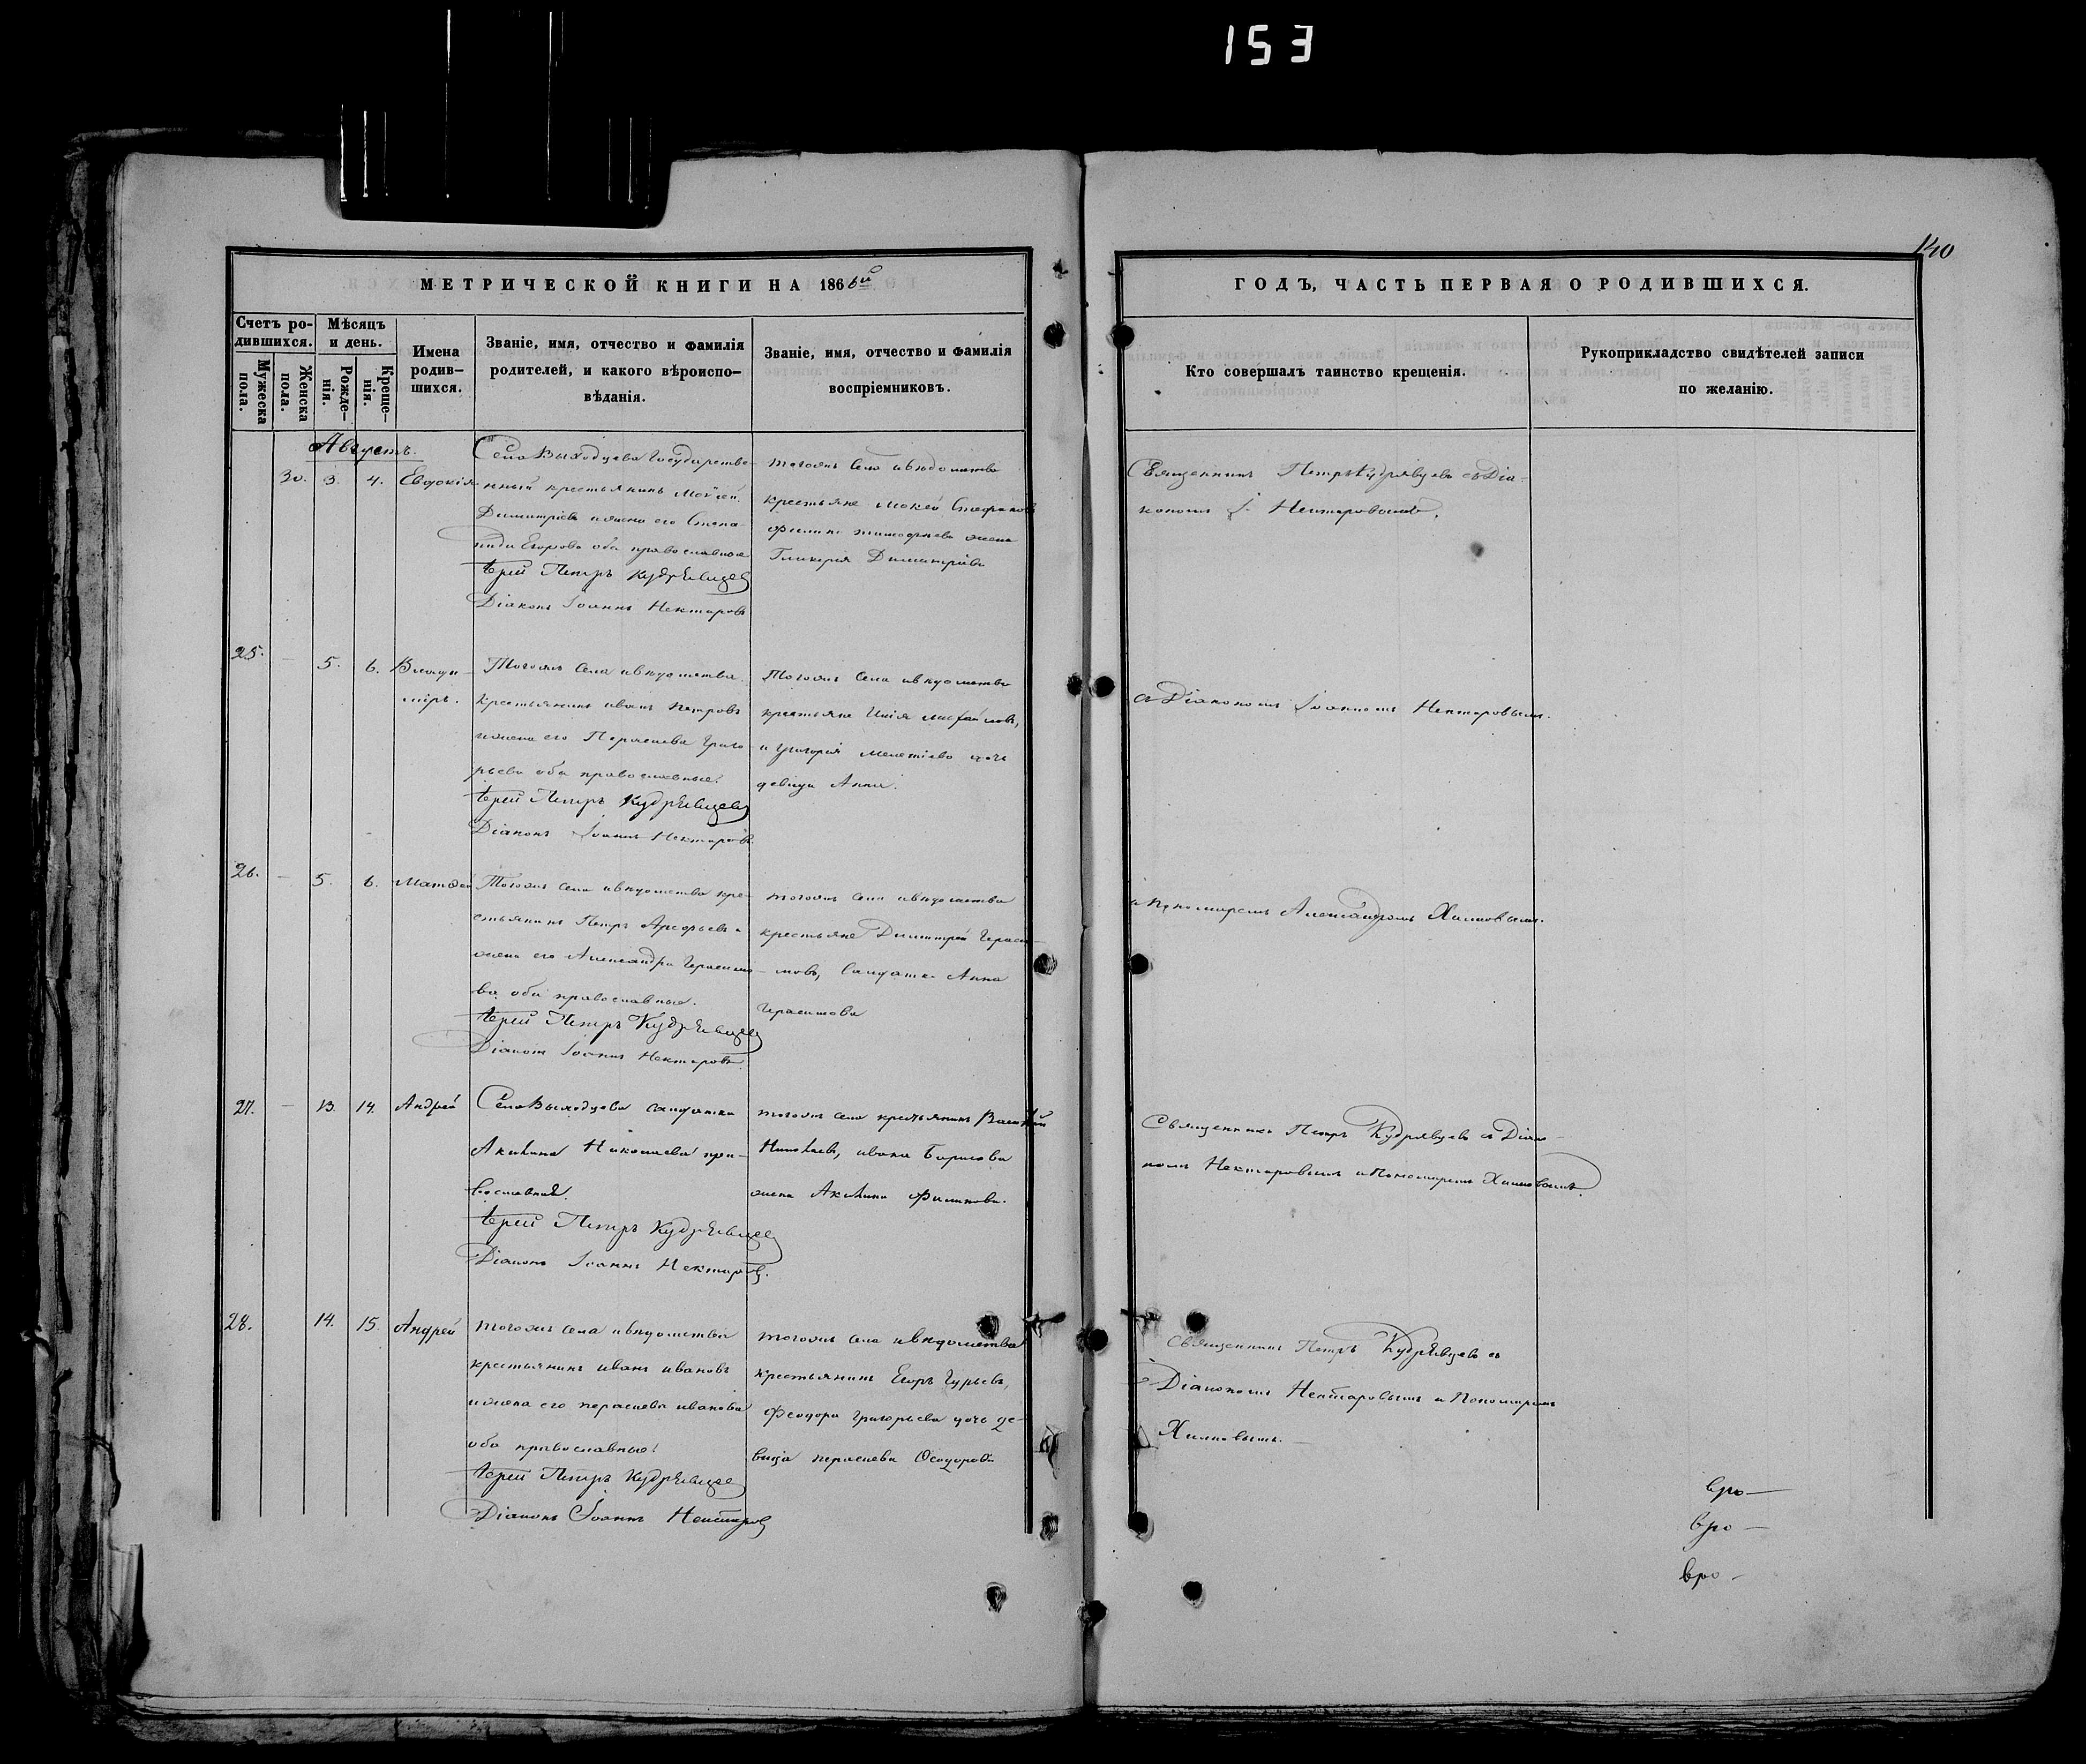 153
140
МЕТРИЧЕСКОЙ КНИГИ НА 1866й
Счетъ ро-
дившихся.
Мужеска
пола.
Женска
пола.
Мѣсяцъ
и день.
Рожде-
нія.
Креще-
нія.
Имена
родив-
шихся.
Званіе, имя, отчество и фамилія
родителей, и какого вѣроиспо-
вѣданія.
Званіе, имя, отчество и фамилія
воспріемниковъ.
ГОДЪ, ЧАСТЬ ПЕРВАЯ О РОДИВШИХСЯ.
Кто совершалъ таинство крещенія.
Рукоприкладство свидѣтелей записи
по желанію.
Августъ.
30. 3. 4. Евдокія
Села Выходцева Государстве-
нный крестьянинъ Моѵсей
Димитріевъ и жена его Степа-
нида Егорова оба православные
Іерей Петръ Кудрявцев
Діаконъ Іоаннъ Нектаровъ
тогожъ Села и вѣдомства
крестьяне Мокей Стефановъ
жена
Гликерія Димитріева
Священникъ Петръ Кудрявцевъ съ Діа-
кономъ І. Нектаровымъ.
25. — 5. 6. Влади-
міръ.
Тогожъ Села и вѣдомства
крестьянинъ иванъ петровъ
и жена его Парасиева Григо
рьева оба православные.
Іерей Петръ Кудрявцев
Діаконъ Іоаннъ Нектаровъ
Тогожъ Села и вѣдомства
крестьяне Илія михайловъ,
и григорія мелетіева дочь
девица Анна.
съ Діакономъ Іоанномъ Нектаровымъ.
26. — 5. 6. Матѳей
Тогожъ села и вѣдомства кре-
стьянинъ Петръ Арефьевъ и
жена его Александра Герасимо-
ва оба православные.
Іерей Петръ Кудрявцев
Діаконъ Іоаннъ Нектаровъ
тогожъ села и вѣдомства
крестьяне Димитрій Гераси-
мовъ, Солдатка Анна
Герасимова
и Пономаремъ Александромъ Хилковымъ.
27. — 13. 14. Андрей
Села Выходцева солдатка
Акилина Николаева пра-
вославная.
Іерей Петръ Кудрявцев
Діаконъ Іоаннъ Нектаровъ.
тогожъ села крестьянинъ Василій
Николаевъ, ивана Борисова
жена Акилина Филипова.
Священникъ Петръ Кудрявцевъ съ Діако-
номъ Нектаровымъ и Пономаремъ Хилковымъ.
28. 14. 15. Андрей
тогожъ села и вѣдомства
крестьянинъ иванъ ивановъ
и жена его парасиева иванова
оба православные.
Іерей Петръ Кудрявцев
Діаконъ Іоаннъ Нектаров
тогожъ села и вѣдомства
крестьянинъ Егоръ Гурьевъ,
Феодора григорьева дочь де-
вица парасиева Ѳеодорова
Священникъ Петръ Кудрявцевъ съ
Діакономъ Нектаровымъ и Пономаремъ
Хилковымъ. —